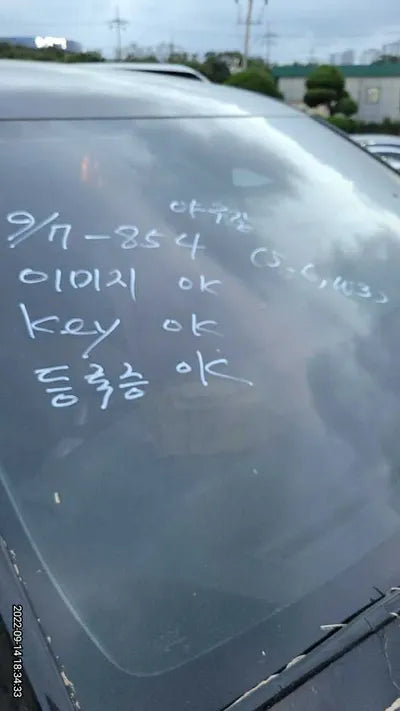 9/7-854
이미지 OK
key OK
등록증 OK
2022:09:14 18:34:33